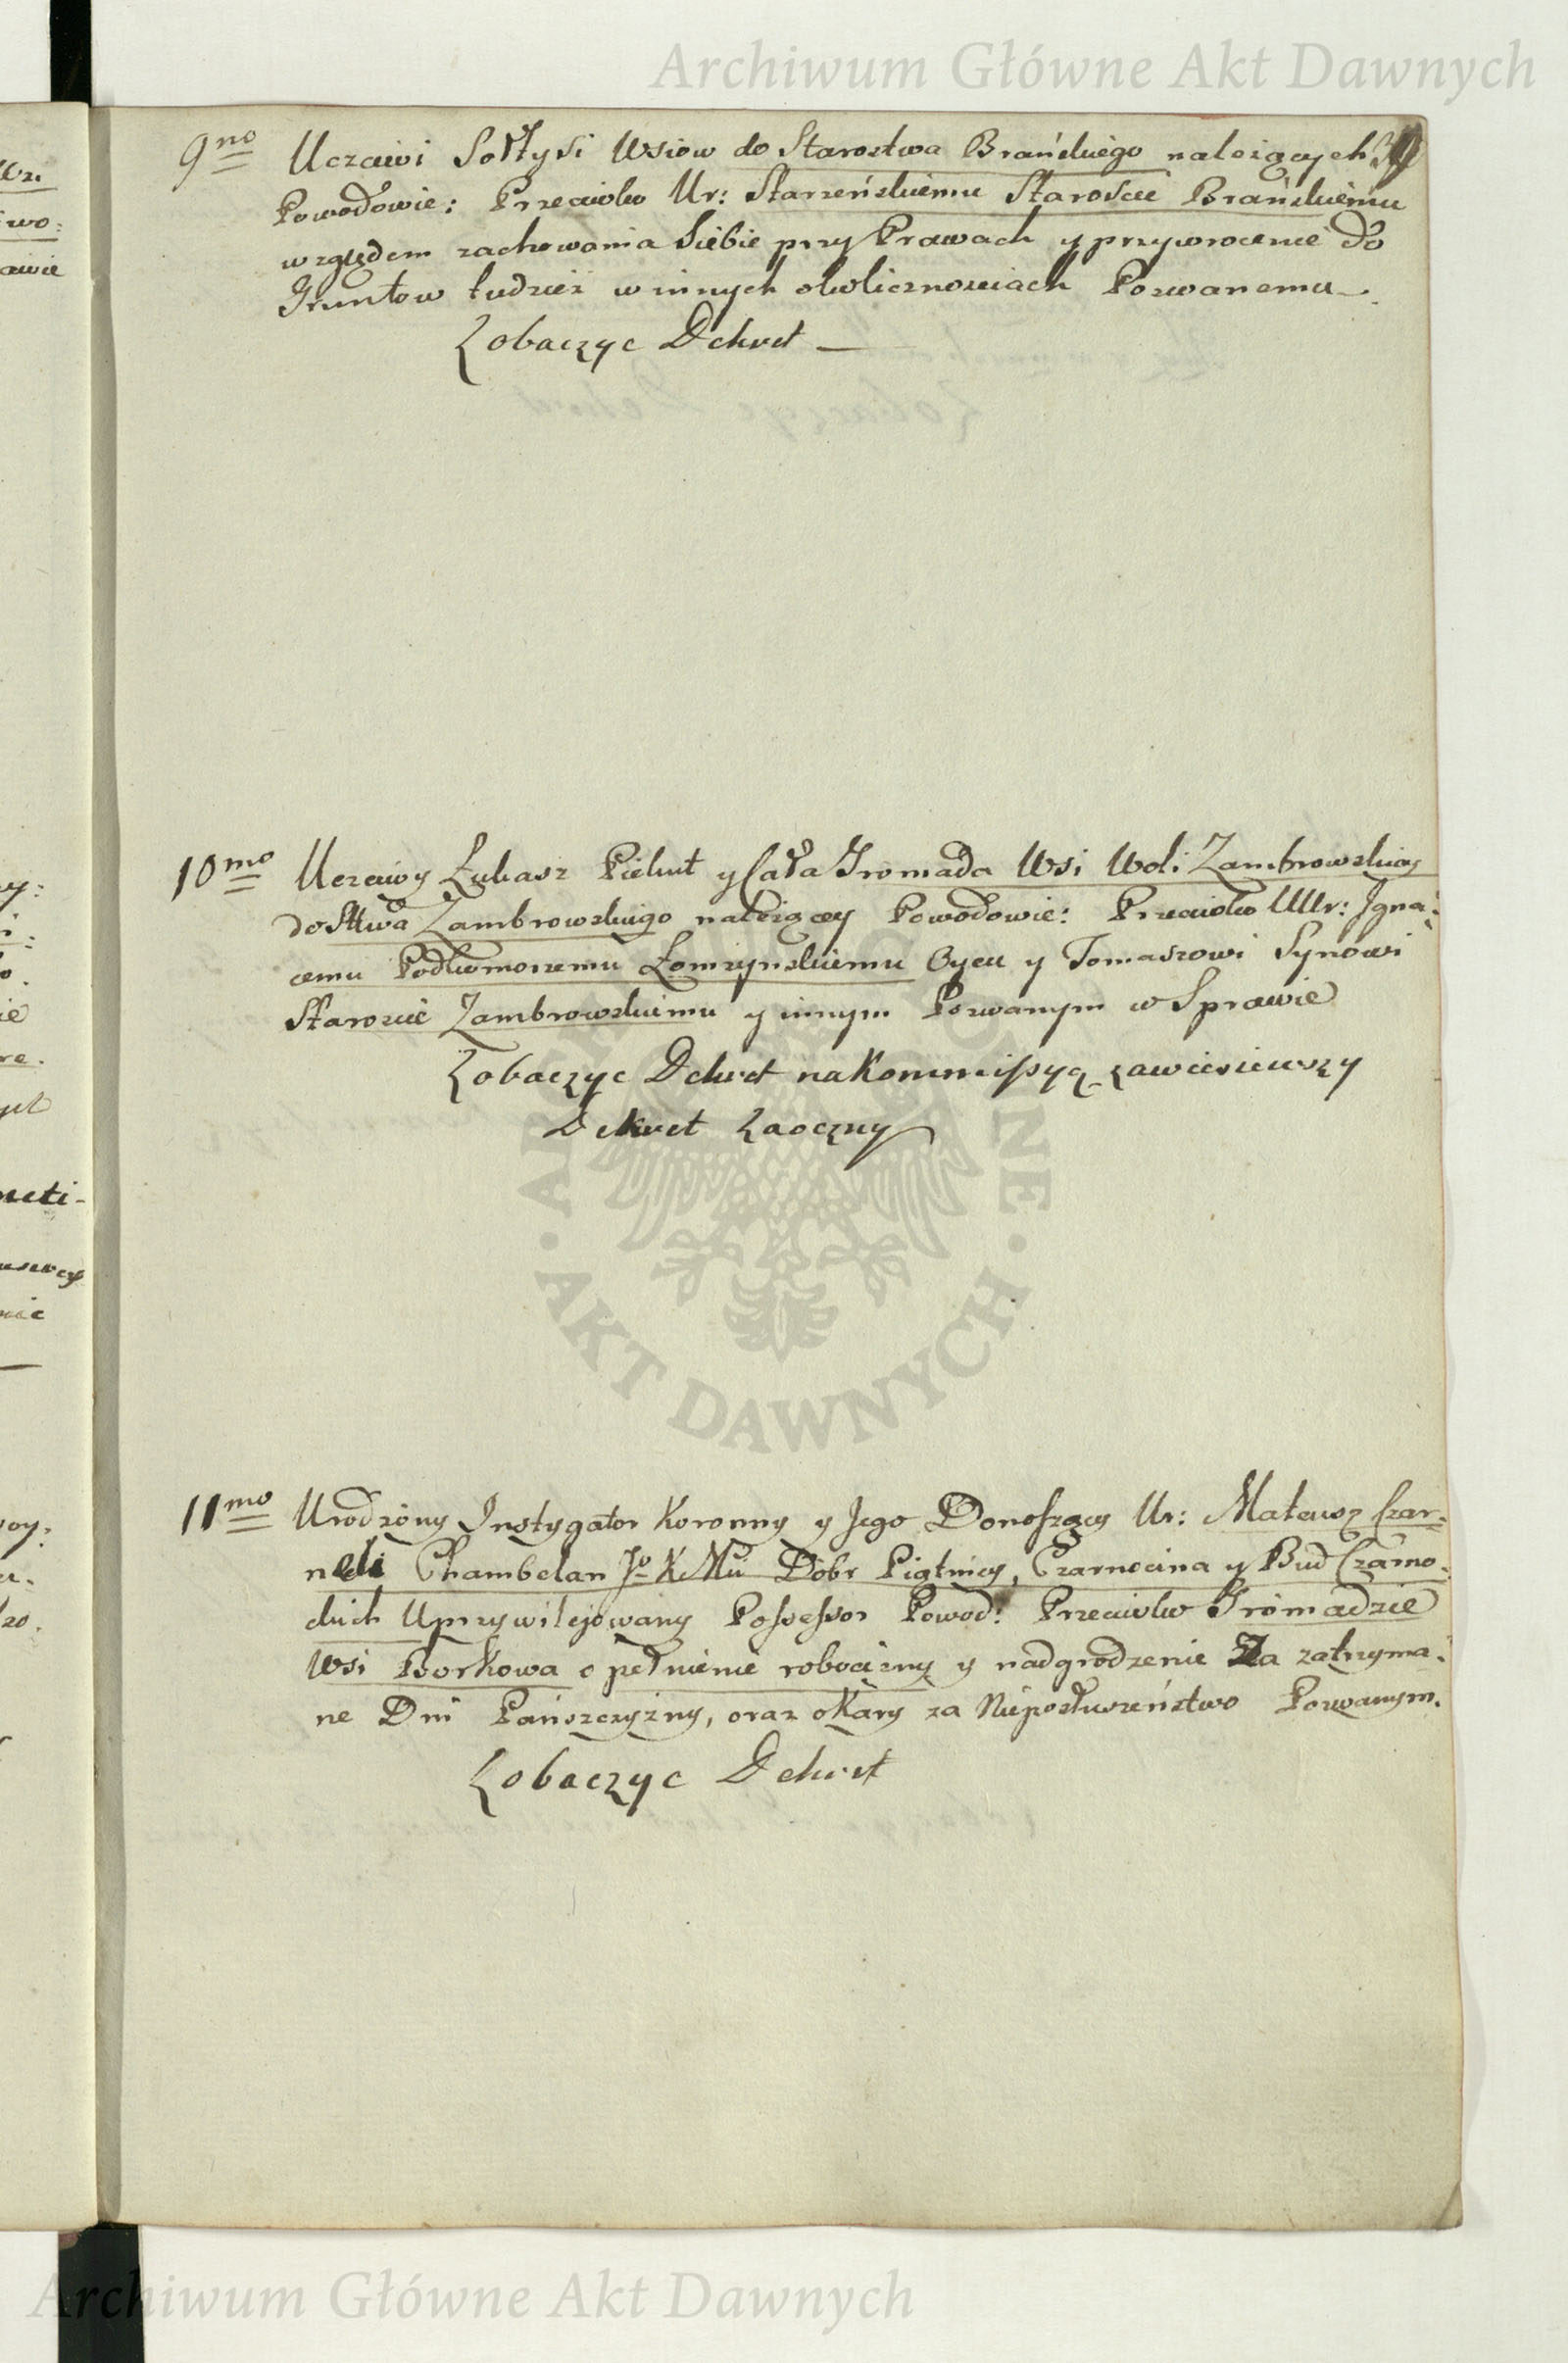 Archiwum Główne Akt Dawnych
9no Uczciwi Sołtysi Wsiow do Starostwa Brańskiego należących
Powodowie: Przeciwko Ur: Starzeńskiemu Staroście Brańskiemu
względem zachowania Siebie przy Prawach y przywrocenie do
Gruntow tudzież w innych okolicznosciach Pozwanemu
Zobaczyc Dekret
10mo Uczciwy Łukasz Piekut y Cała Gromada Wsi Woli Zambrowskiey
do Sttwa Zambrowskiego należącey Powodowie: Przeciwko UUr: Igna:
cemu Podkomorzemu Łomzynskiemu Oycu y Tomaszowi Synowi
Staroscie Zambrowskiemu y innym Pozwanym w Sprawie
Zobaczyc Dekret na Kommissyą zawiesiwszy
Dekret Zaoczny
11mo Urodzony Instygator Koronny y Jego Donoszący Ur: Mateusz Czar:
necki Chambelan Jo K Mci Dobr Piątnicy, Czarnocina y Bud Czarno:
ckich Uprzywilejowany Possessor Powod: Przeciwko Gromadzie
Wsi Borkowa o pełnienie robocizny y nadgrodzenie Za zatrzyma:
ne Dni Pańszczyzny, oraz o Kary za Nieposłuszeństwo Pozwanym.
Zobaczyc Dekret
AKT DAWNYCH
Archiwum Główne Akt Dawnych